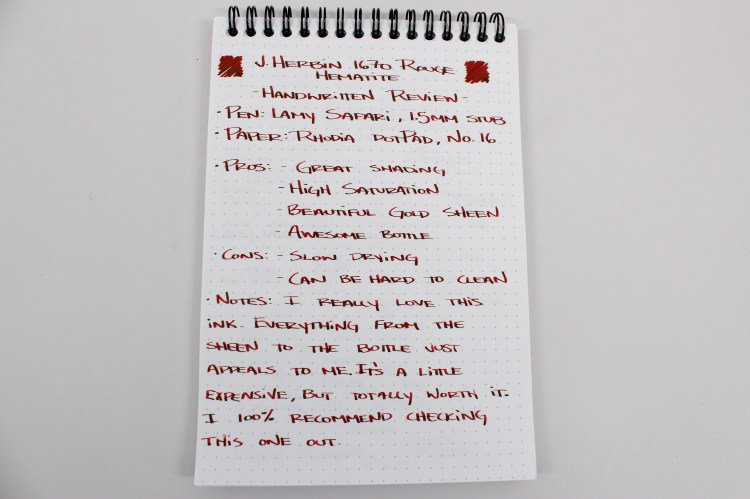 J. Herbin 1670 Rouge
Hematite
- Handwritten Review -
· Pen: Lamy Safari, 1.5mm stub
· Paper: Rhodia dotPad, No. 16
· Pros: - Great shading
- High Saturation
- Beautiful Gold Sheen
- Awesome Bottle
· Cons: - Slow Drying
- Can be hard to clean
· Notes: I really love this
ink. Everything from the
sheen to the bottle just
appeals to me. It's a little
expensive, but totally worth it.
I 100% recommend checking
this one out.